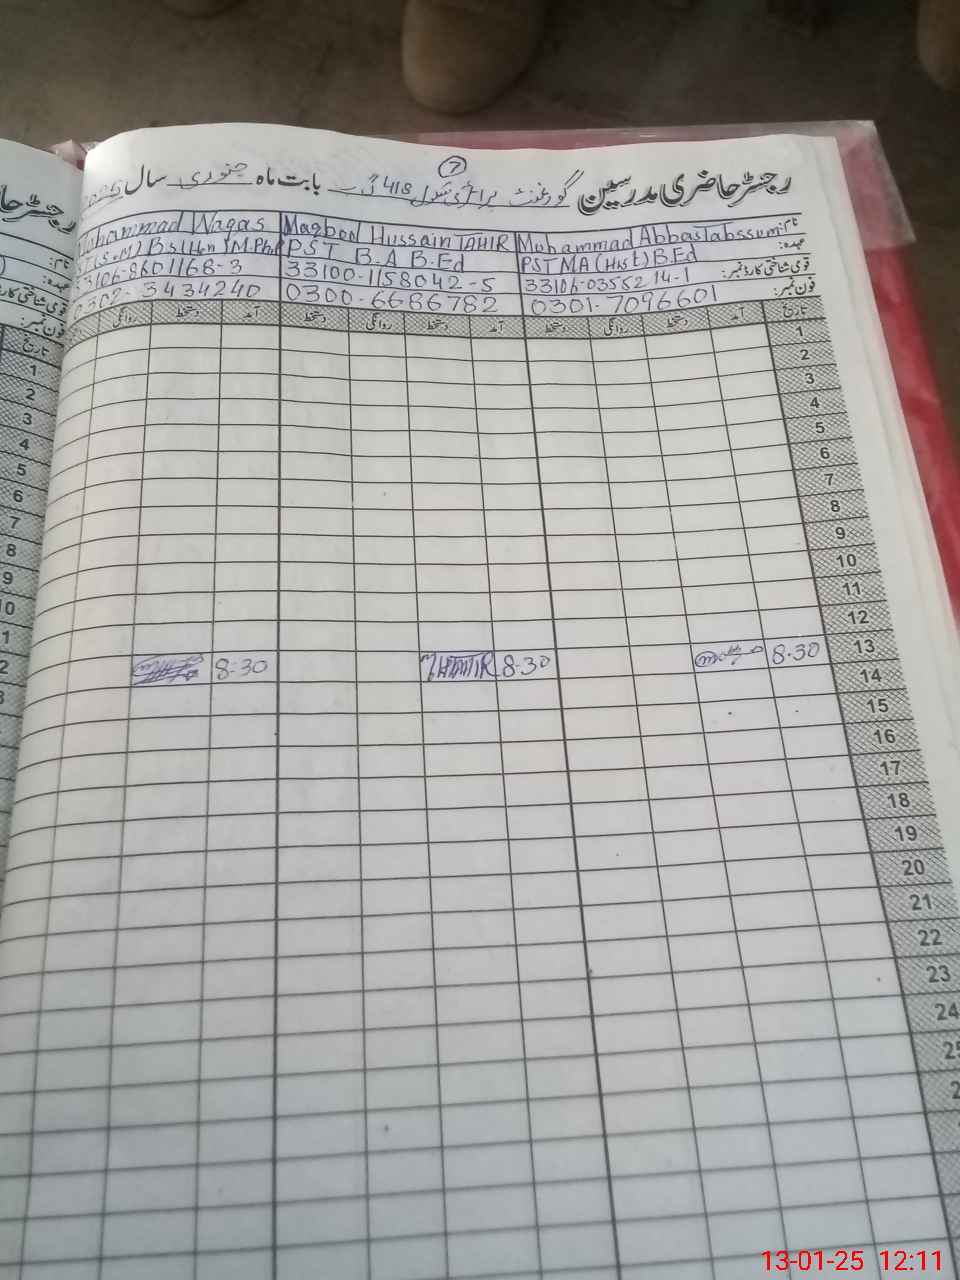 7
رجسٹر حاضری مدرسین گورنمنٹ پرائمری سکول 418 گ ب بابت ماہ جنوری سال 2025
نام: Muhammad Abbas Tabssum Maqbool Hussain TAHIR Mohammad Waqas
عہدہ: PST MA (Hist) B.Ed PST B.A B.Ed M.Phil
قومی شناختی کارڈ نمبر: 33106-0355214-1 33100-1158042-5 33106-8601168-3
فون نمبر: 0301-7096601 0300-6686782 0302-3434240
تاریخ آمد دستخط روانگی دستخط آمد دستخط روانگی دستخط آمد دستخط روانگی
1
2
3
4
5
6
7
8
9
10
11
12
13 8.30 8.30 8.30
14
15
16
17
18
19
20
21
22
23
24
رجسٹر حا
نام:
عہدہ:
قومی شناختی کارڈ
فون نمبر:
تاریخ
1
2
3
4
5
6
7
8
9
10
13-01-25 12:11